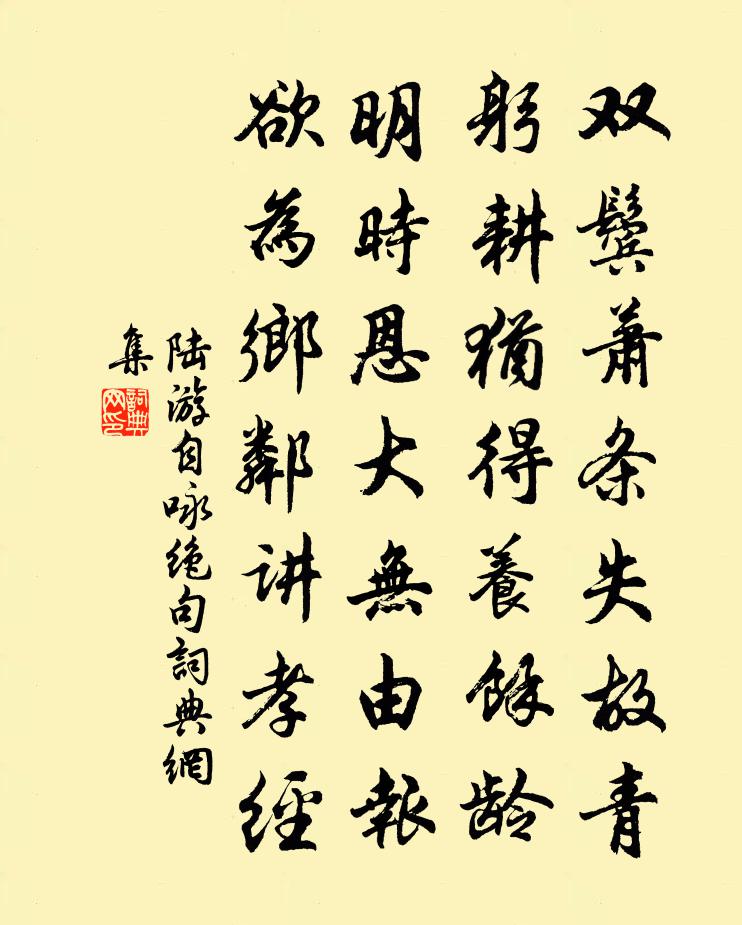 双鬓萧条失故青
躬耕猶得養餘龄
明時恩大無由報
欲為鄉鄰讲孝經
陆游自咏绝句詞典網
集
詞典
网印